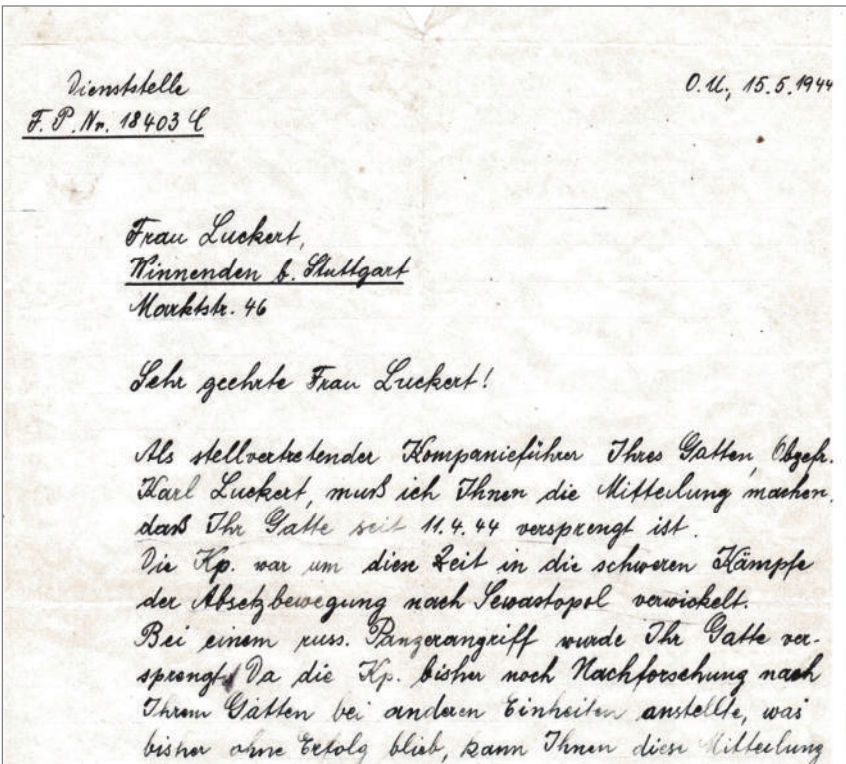 Dienststelle
F.P.Nr. 18403 C
O.U., 15.5.1944
Frau Luckert,
Winnenden b. Stuttgart
Marktstr. 46
Sehr geehrte Frau Luckert!
Als stellvertretender Kompanieführer Ihres Gatten, Obgefr.
Karl Luckert, muß ich Ihnen die Mitteilung machen,
daß Ihr Gatte seit 11.4.44 versprengt ist.
Die Kp. war um diese Zeit in die schweren Kämpfe
der Absetzbewegung nach Sewastopol verwickelt.
Bei einem russ. Panzerangriff wurde Ihr Gatte ver-
sprengt. Da die Kp. bisher noch Nachforschung nach
Ihrem Gatten bei anderen Einheiten anstellte, was
bisher ohne Erfolg blieb, kann Ihnen diese Mitteilung